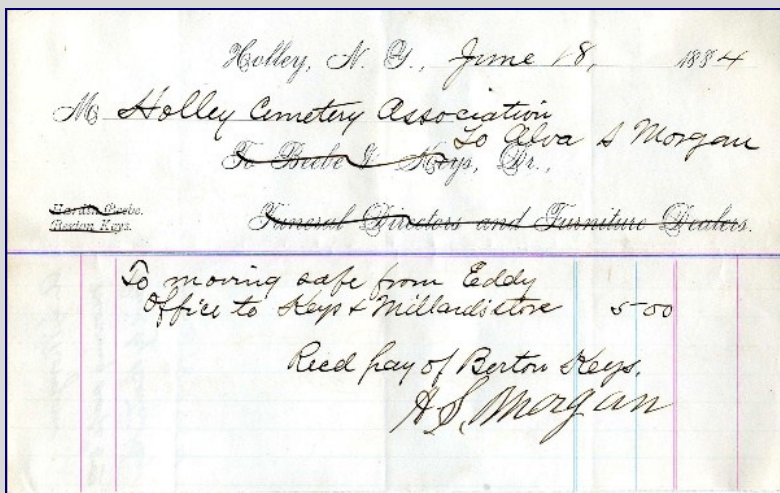 Holley, N. Y., June 18, 1884
M Holley Cemetery Association
To Alva S Morgan
To Beebe & Keys, Dr.,
Beebe.
Berton Keys.
Funeral Directors and Furniture Dealers.
To moving safe from Eddy
Office to Keys & Millards store 5-00
Recd pay of Berton Keys.
A. S. Morgan